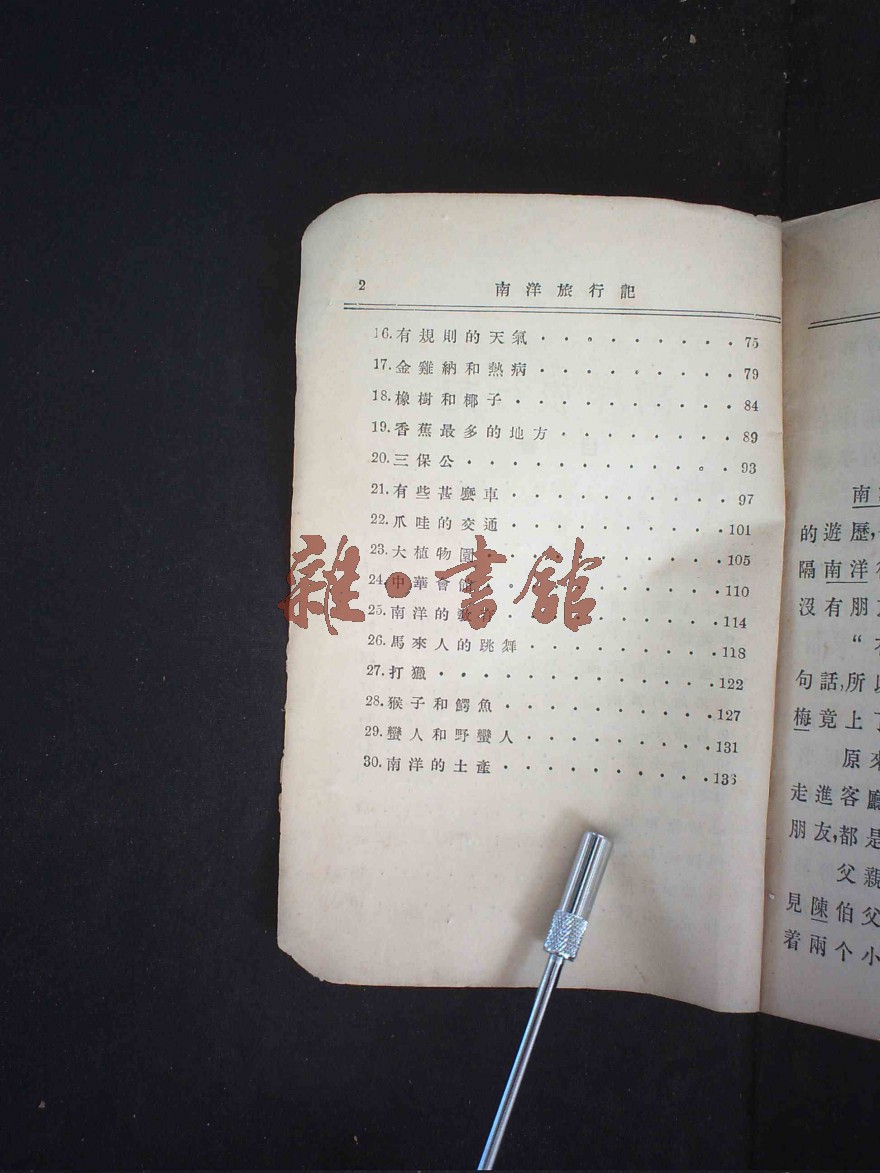 2 南洋旅行記
16.有規則的天氣 · · · · · · · · · 75
17.金雞納和熱病 · · · · · · · · · 79
18.橡樹和椰子 · · · · · · · · · · 84
19.香蕉最多的地方 · · · · · · · · 89
20.三保公 · · · · · · · · · · · · 93
21.有些甚麼車 · · · · · · · · · · 97
22.爪哇的交通 · · · · · · · · · · 101
23.大植物園 · · · · · · · · · · · 105
24.中華會館 · · · · · · · · · · · 110
25.南洋的教 · · · · · · · · · · 114
26.馬來人的跳舞 · · · · · · · · · 118
27.打獵 · · · · · · · · · · · · · 122
28.猴子和鰐魚 · · · · · · · · · · 127
29.蠻人和野蠻人 · · · · · · · · · 131
30.南洋的土產 · · · · · · · · · · 136
雜·書館
南
的遊歷,
隔南洋
沒有朋
“
句話,所以
梅竟上
原來
走進客廳
朋友,都是
父親
見陳伯父
着兩个小